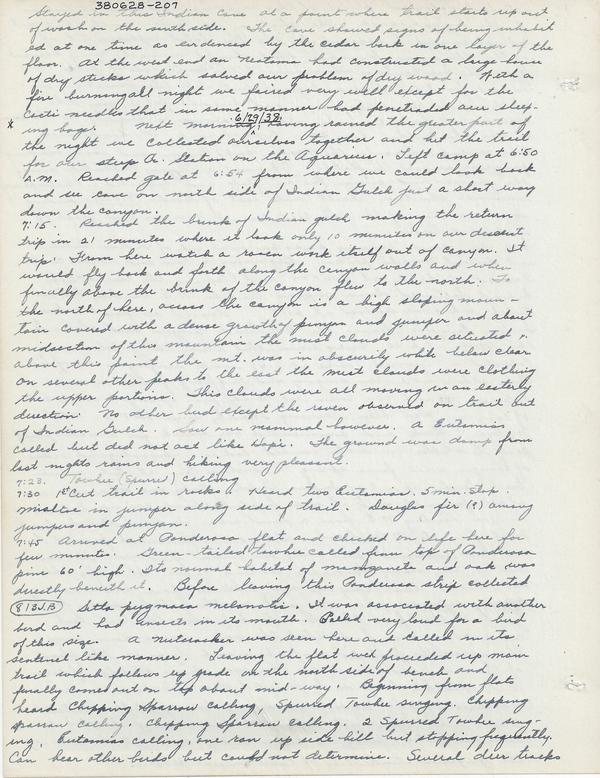 380628-207
Stayed in this Indian Cave at a point where trail starts up out
of wash on the north side. The cave showed signs of being inhabit
ed at one time as evidenced by the cedar bark in one layer of the
floor. At the west end an Neotoma had constructed a large house
of dry sticks which solved our problem of dry wood. With a
fire burning all night we faired very well except for the
cacti needles that in some manner had penetrated our sleep-
6/29/38.
* ing bags. Next morning having rained the greater part of
the night we collected ourselves together and hit the trail
for our steep A. Station on the Aquarius. Left camp at 6:50
A.M. Reached gate at 6:54 from where we could look back
and see cave on north side of Indian Gulch just a short way
down the canyon.
7:15. Reached the brink of Indian gulch making the return
trip in 21 minutes where it took only 10 minutes on our descent
trip. From here watch a raven work itself out of canyon. It
would fly back and forth along the canyon walls and when
finally above the brink of the canyon flew to the north. To
the north of here, across the canyon is a high sloping moun-
tain covered with a dense growth of pinyon and juniper and about
midsection of this mountain the mist clouds were situated.
above this point the mt. was in obscurity while below clear
on several other peaks to the east the mist clouds were clothing
the upper portions. This clouds were all moving in an easterly
direction. No other bird except the raven observed on trail out
of Indian Gulch. Saw one mammal however. A Eutamias
called but did not act like Hopi. The ground was damp from
last nights rains and hiking very pleasant.
7:23. Towhee (Spurred) calling
7:30 1st Cut trail in rocks. Heard two Eutamias. 5 min. stop.
mistletoe in juniper along side of trail. Douglas fir (?) among
junipers and pinyon.
7:45 Arrived at Ponderosa flat and checked on life here for
few minutes. Green-tailed towhee called from top of Ponderosa
pine 60' high. Its normal habitat of manzanita and oak was
directly beneath it. Before leaving this Ponderosa strip collected
813J.B Sitta pygmaea melanotis. It was associated with another
bird and had insects in its mouth. Called very loud for a bird
of this size. A Nutcracker was seen here and called in its
sentinel like manner. Leaving the flat we proceeded up main
trail which follows up grade on the north side of bench and
finally comes out on top about mid-way. Beginning from flats
heard Chipping Sparrow calling, Spurred Towhee singing. Chipping
Sparrow calling. Chipping Sparrow calling. 2 Spurred Towhee sing-
ing, Eutamias calling, one ran up side hill but stopping frequently.
Can hear other birds but could not determine. Several deer tracks